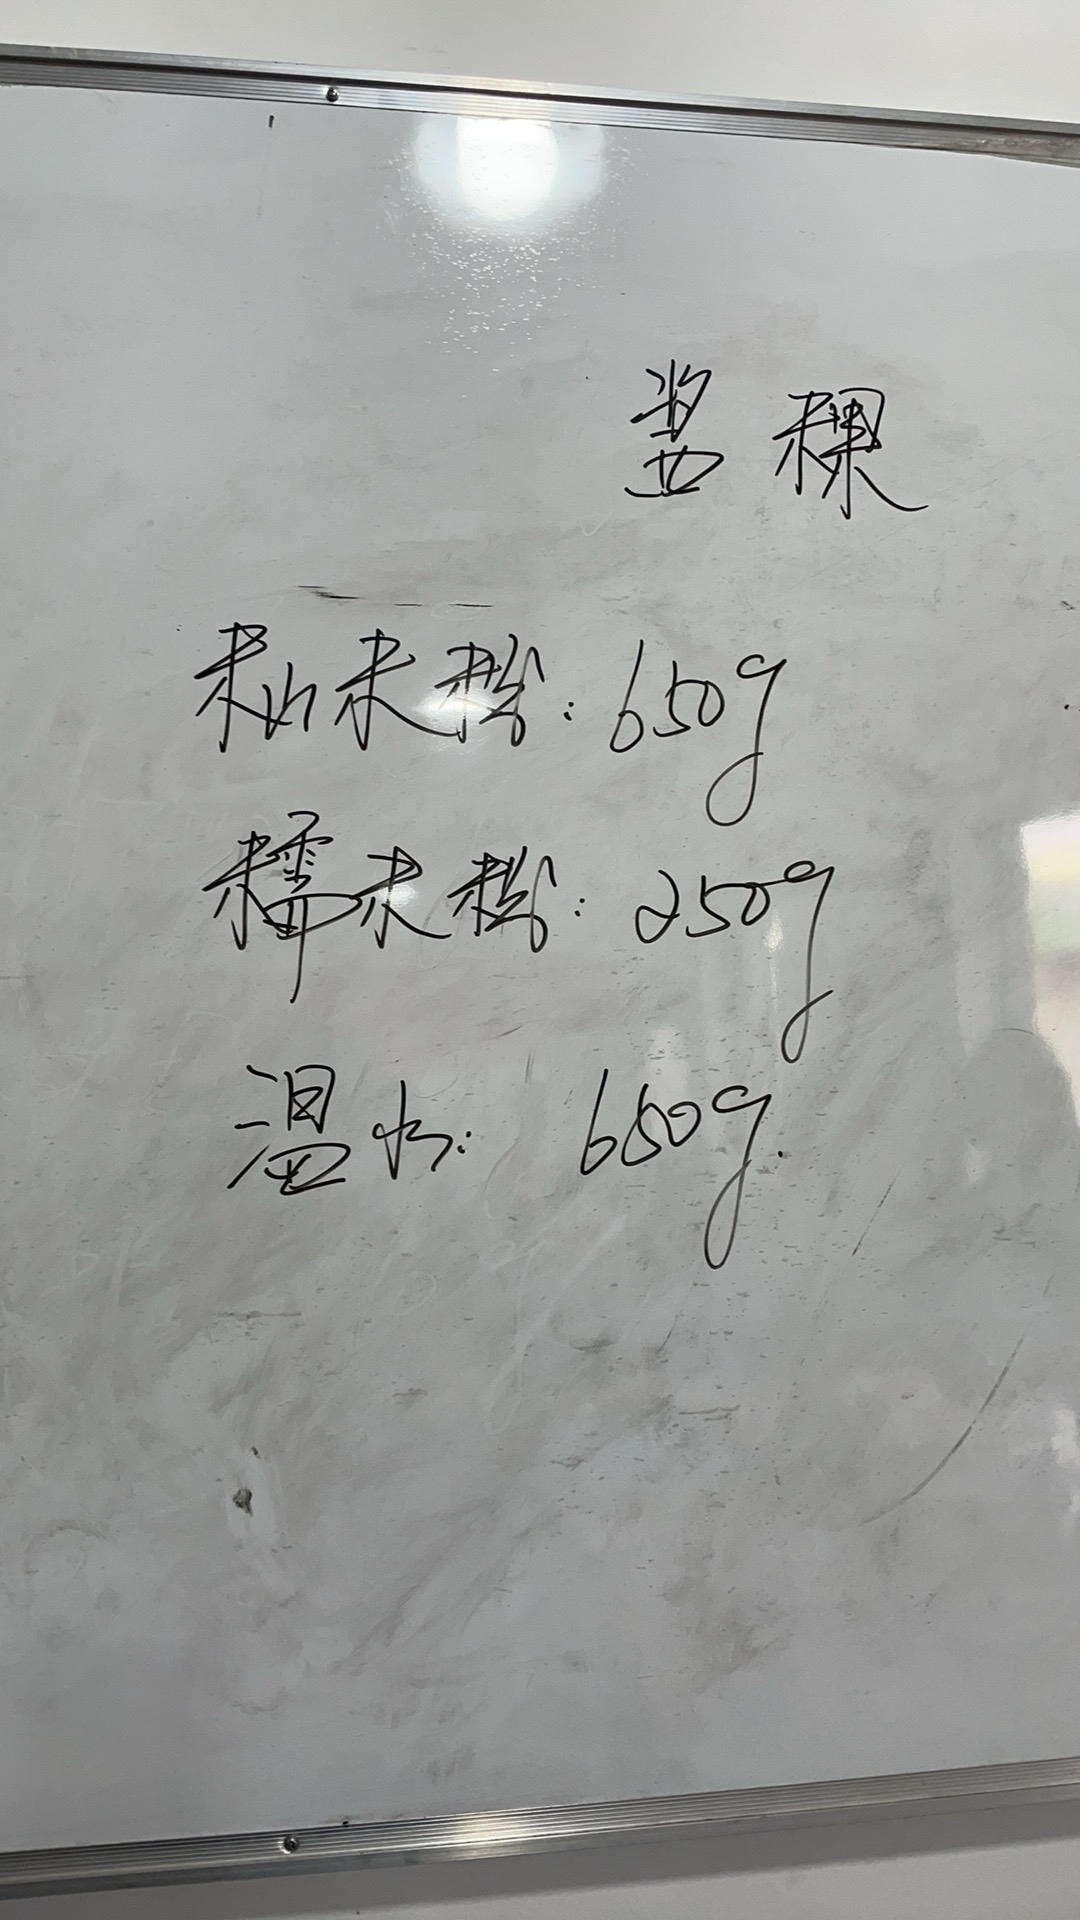 酱粿
籼米粉：650g
糯米粉：250g
温水：650g.